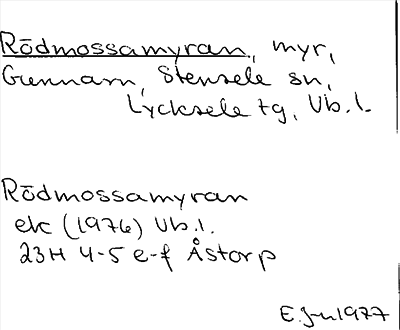 Rödmossamyran, myr,
Gunnarn, Stensele sn,
Lycksele tg, Vb.l.
Rödmossamyran
ek (1976) Vb.l.
23H 4-5 e-f Åstorp
1977